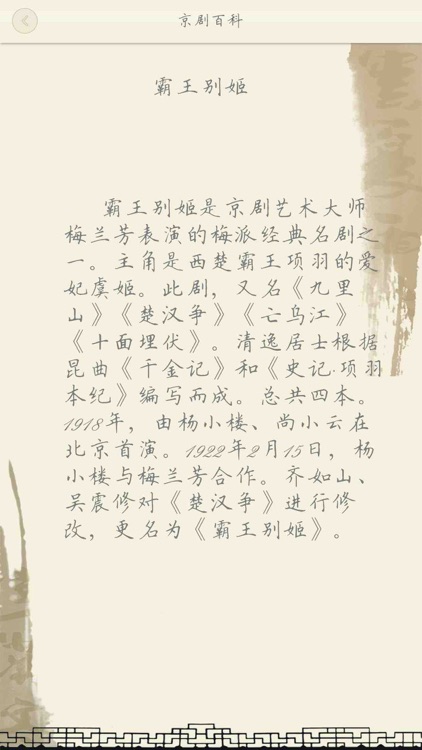 京剧百科
霸王别姬
霸王别姬是京剧艺术大师
梅兰芳表演的梅派经典名剧之
一。主角是西楚霸王项羽的爱
妃虞姬。此剧，又名《九里
山》《楚汉争》《亡乌江》
《十面埋伏》。清逸居士根据
昆曲《千金记》和《史记·项羽
本纪》编写而成。总共四本。
1918年，由杨小楼、尚小云在
北京首演。1922年2月15日，杨
小楼与梅兰芳合作。齐如山、
吴震修对《楚汉争》进行修
改，更名为《霸王别姬》。